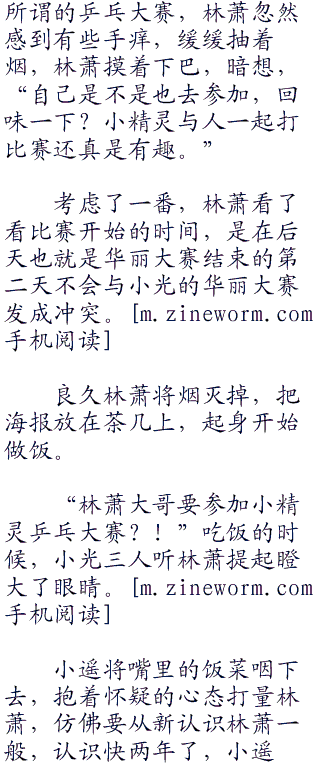 所谓的乒乓大赛，林萧忽然
感到有些手痒，缓缓抽着
烟，林萧摸着下巴，暗想，
“自己是不是也去参加，回
味一下？小精灵与人一起打
比赛还真是有趣。”
考虑了一番，林萧看了
看比赛开始的时间，是在后
天也就是华丽大赛结束的第
二天不会与小光的华丽大赛
发成冲突。[m.zineworm.com
手机阅读]
良久林萧将烟灭掉，把
海报放在茶几上，起身开始
做饭。
“林萧大哥要参加小精
灵乒乓大赛？！”吃饭的时
候，小光三人听林萧提起瞪
大了眼睛。[m.zineworm.com
手机阅读]
小遥将嘴里的饭菜咽下
去，抱着怀疑的心态打量林
萧，仿佛要从新认识林萧一
般，认识快两年了，小遥